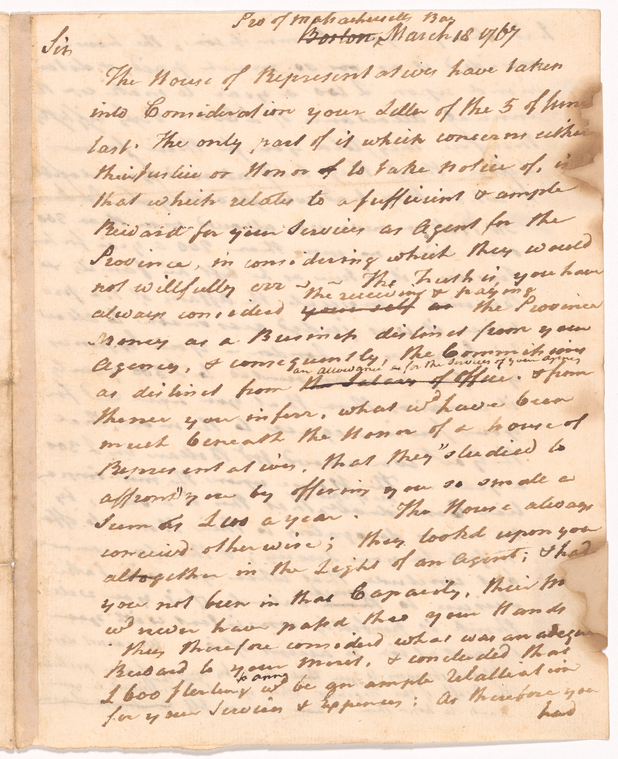 Pro of Massachusetts Bay
Boston, March 18 1767
Sir
The House of Representatives have taken
into Consideration your Letter of the 5 of June
last. The only part of it which concerns either
their Justice or Honor to take notice of, is
that which relates to a sufficient & ample
Reward for your Services as Agent for the
Province, in considering which they would
not willfully err – The Truth is, you have
the receiving & paying
always considerd yourself as the Province
Money as a Business distinct from your
Agency, & consequently, the Commissions
an allowance for the Services of your Agency
as distinct from the Salary of Office. & from
thence you inferr, what wd have been
much beneath the Honor of a house of
Representatives, that they "studied to
affront" you by offering you so small a
Sum as £100 a year. The House always
conceivd otherwise; they look'd upon you
altogether in the Light of an Agent; & had
you not been in that Capacity, their M
wd never have passd thro your Hands
. They therefore considd what was an adequ
Reward to your merit, & concluded that
p ann
£600 sterling wd be an ample retaliation
for your Services & Expences: As therefore you
had